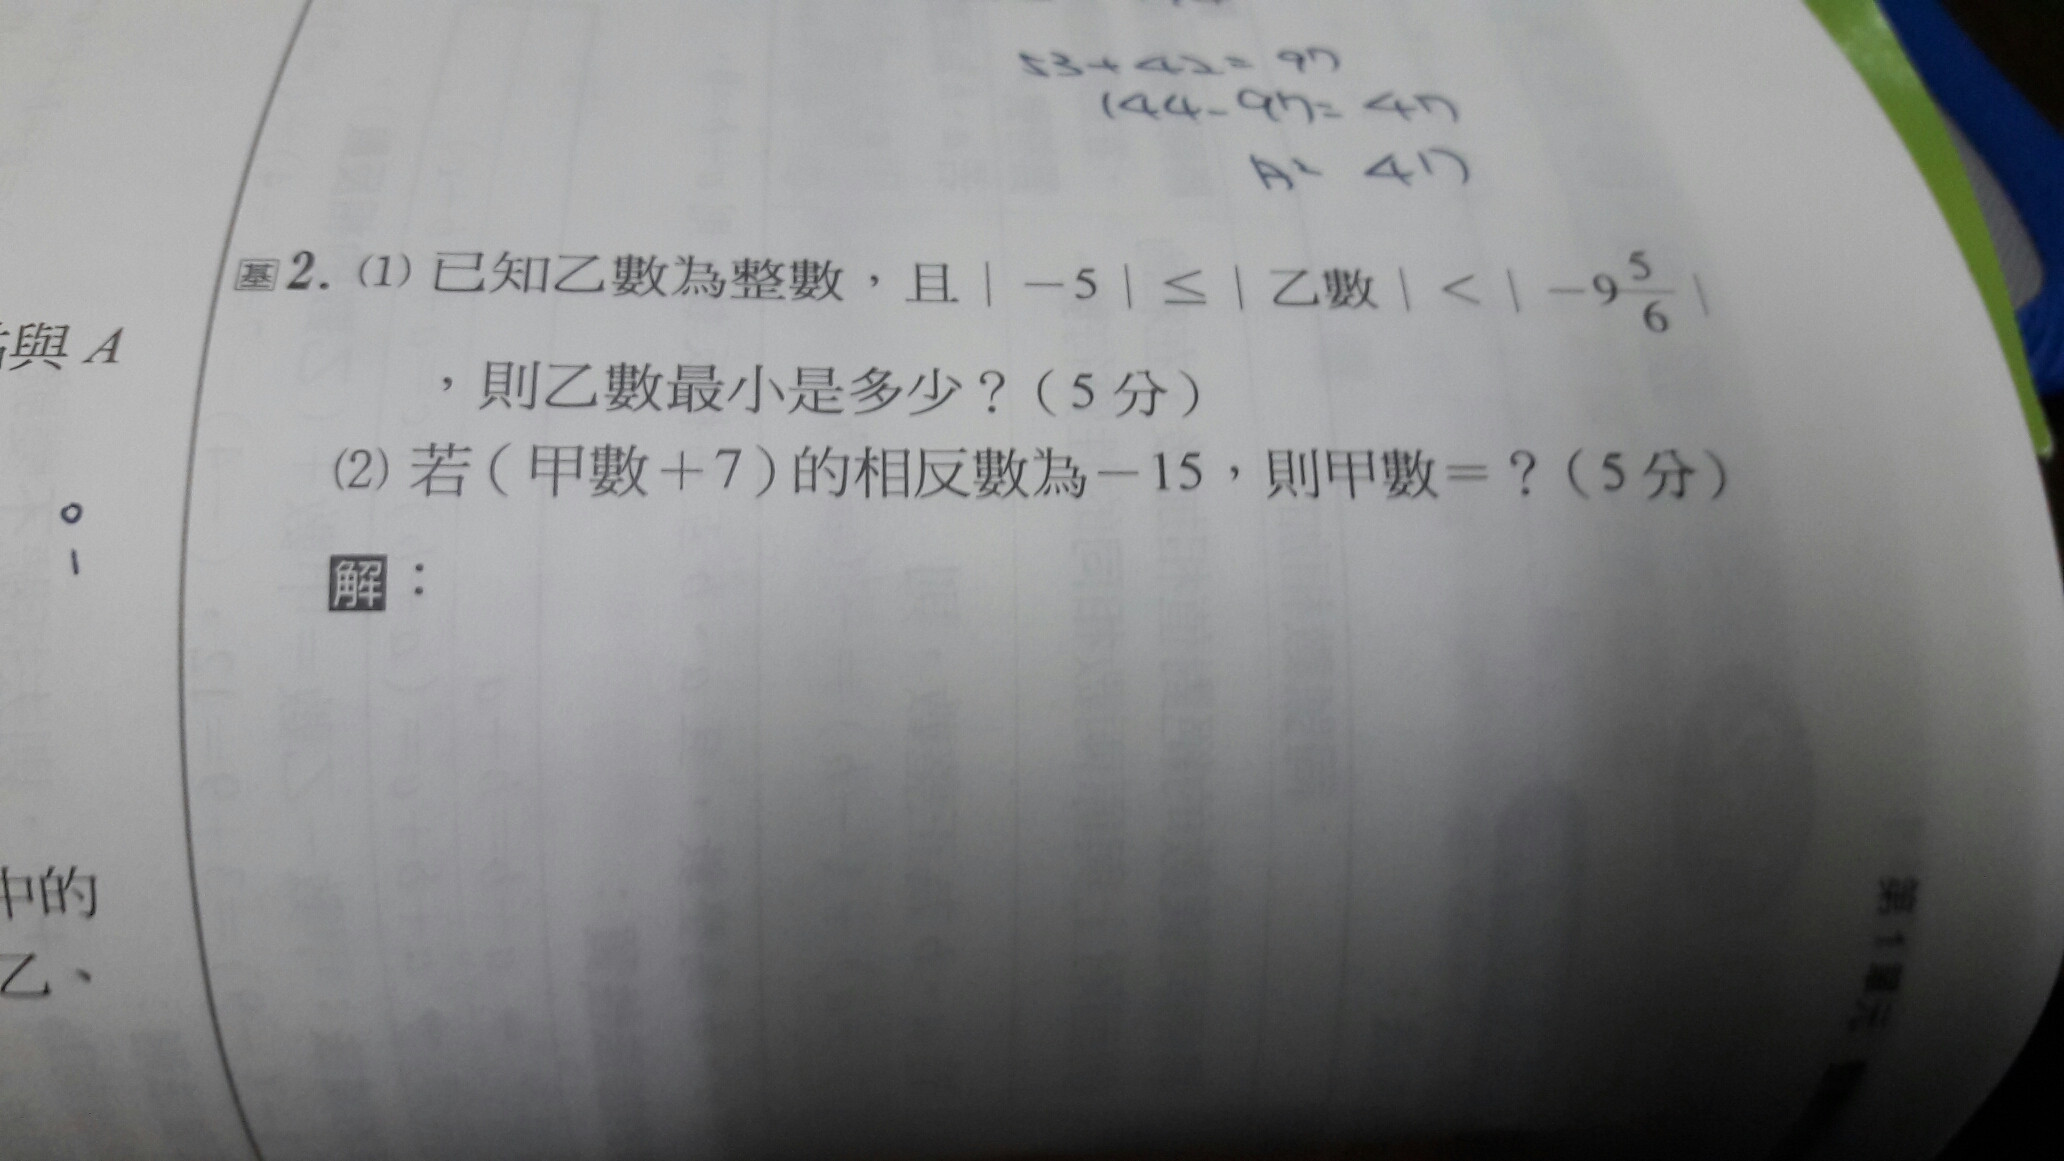 53+42=97
144-97=47
A= 47
基 2. (1) 已知乙數為整數，且|－5|≤|乙數|<|－9 5/6|
，則乙數最小是多少？(5 分)
(2) 若(甲數＋7)的相反數為－15，則甲數＝？(5 分)
解：
與 A
中的
乙、
第 1 單元